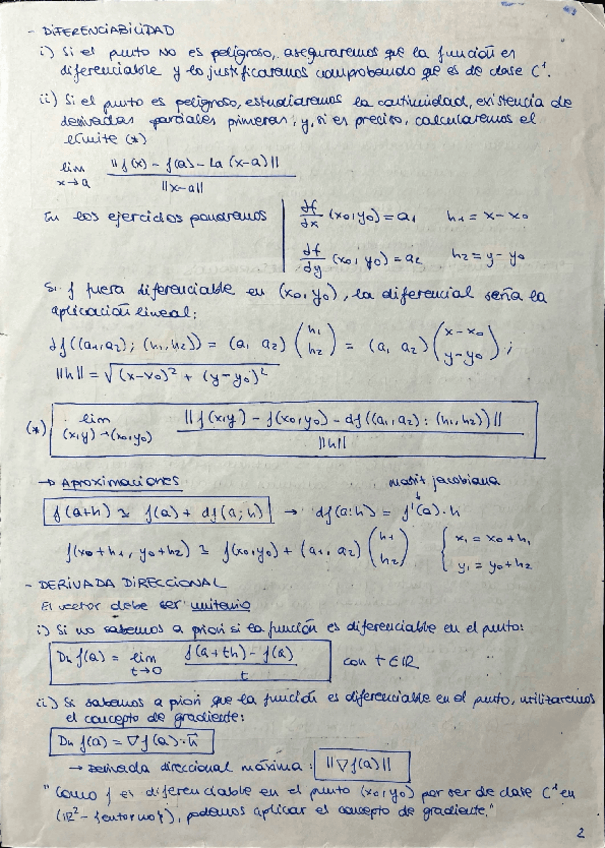 - DIFERENCIABILIDAD
i) Si el punto NO es peligroso, aseguraremos que la función es
diferenciable y lo justificaremos comprobando que es de clase C¹.
ii) Si el punto es peligroso, estudiaremos la continuidad, existencia de
derivadas parciales primeras, y, si es preciso, calcularemos el
límite (*)
lim x→a ||f(x) - f(a) - La (x-a)|| / ||x-a||
En los ejercicios pondremos | df/dx (x0,y0) = a1   h1 = x - x0
df/dy (x0, y0) = a2   h2 = y - y0
Si f fuera diferenciable en (x0, y0), la diferencial sería la
aplicación lineal:
df((a1,a2); (h1,h2)) = (a1 a2) (h1 h2) = (a1 a2) (x-x0 y-y0) ;
||h|| = √(x-x0)² + (y-y0)²
(*) lim (x,y)→(x0,y0) ||f(x,y) - f(x0,y0) - df((a1,a2): (h1,h2))|| / ||h||
→ Aproximaciones   matriz jacobiana
f(a+h) ≅ f(a) + df(a;h) → df(a:h) = f'(a)·h
f(x0+h1, y0+h2) ≅ f(x0,y0) + (a1, a2) (h1 h2)   { x1 = x0+h1 y1 = y0+h2
- DERIVADA DIRECCIONAL
El vector debe ser unitario
i) Si no sabemos a priori si la función es diferenciable en el punto:
Dh f(a) = lim t→0 f(a+th) - f(a) / t   con t∈ℝ
ii) Si sabemos a priori que la función es diferenciable en el punto, utilizaremos
el concepto de gradiente:
Dh f(a) = ∇f(a)·h̄
→ Derivada direccional máxima: ||∇f(a)||
"Como f es diferenciable en el punto (x0,y0) por ser de clase C¹ en
(ℝ² - {entorno}), podemos aplicar el concepto de gradiente."
2